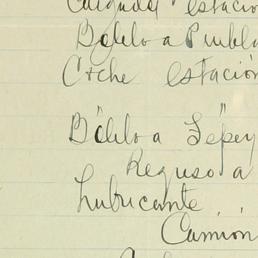 Cargada estacio
Boleto a Puebla
Coche estación
Boleto a Tepey
Regreso a
Lubricante
Camión